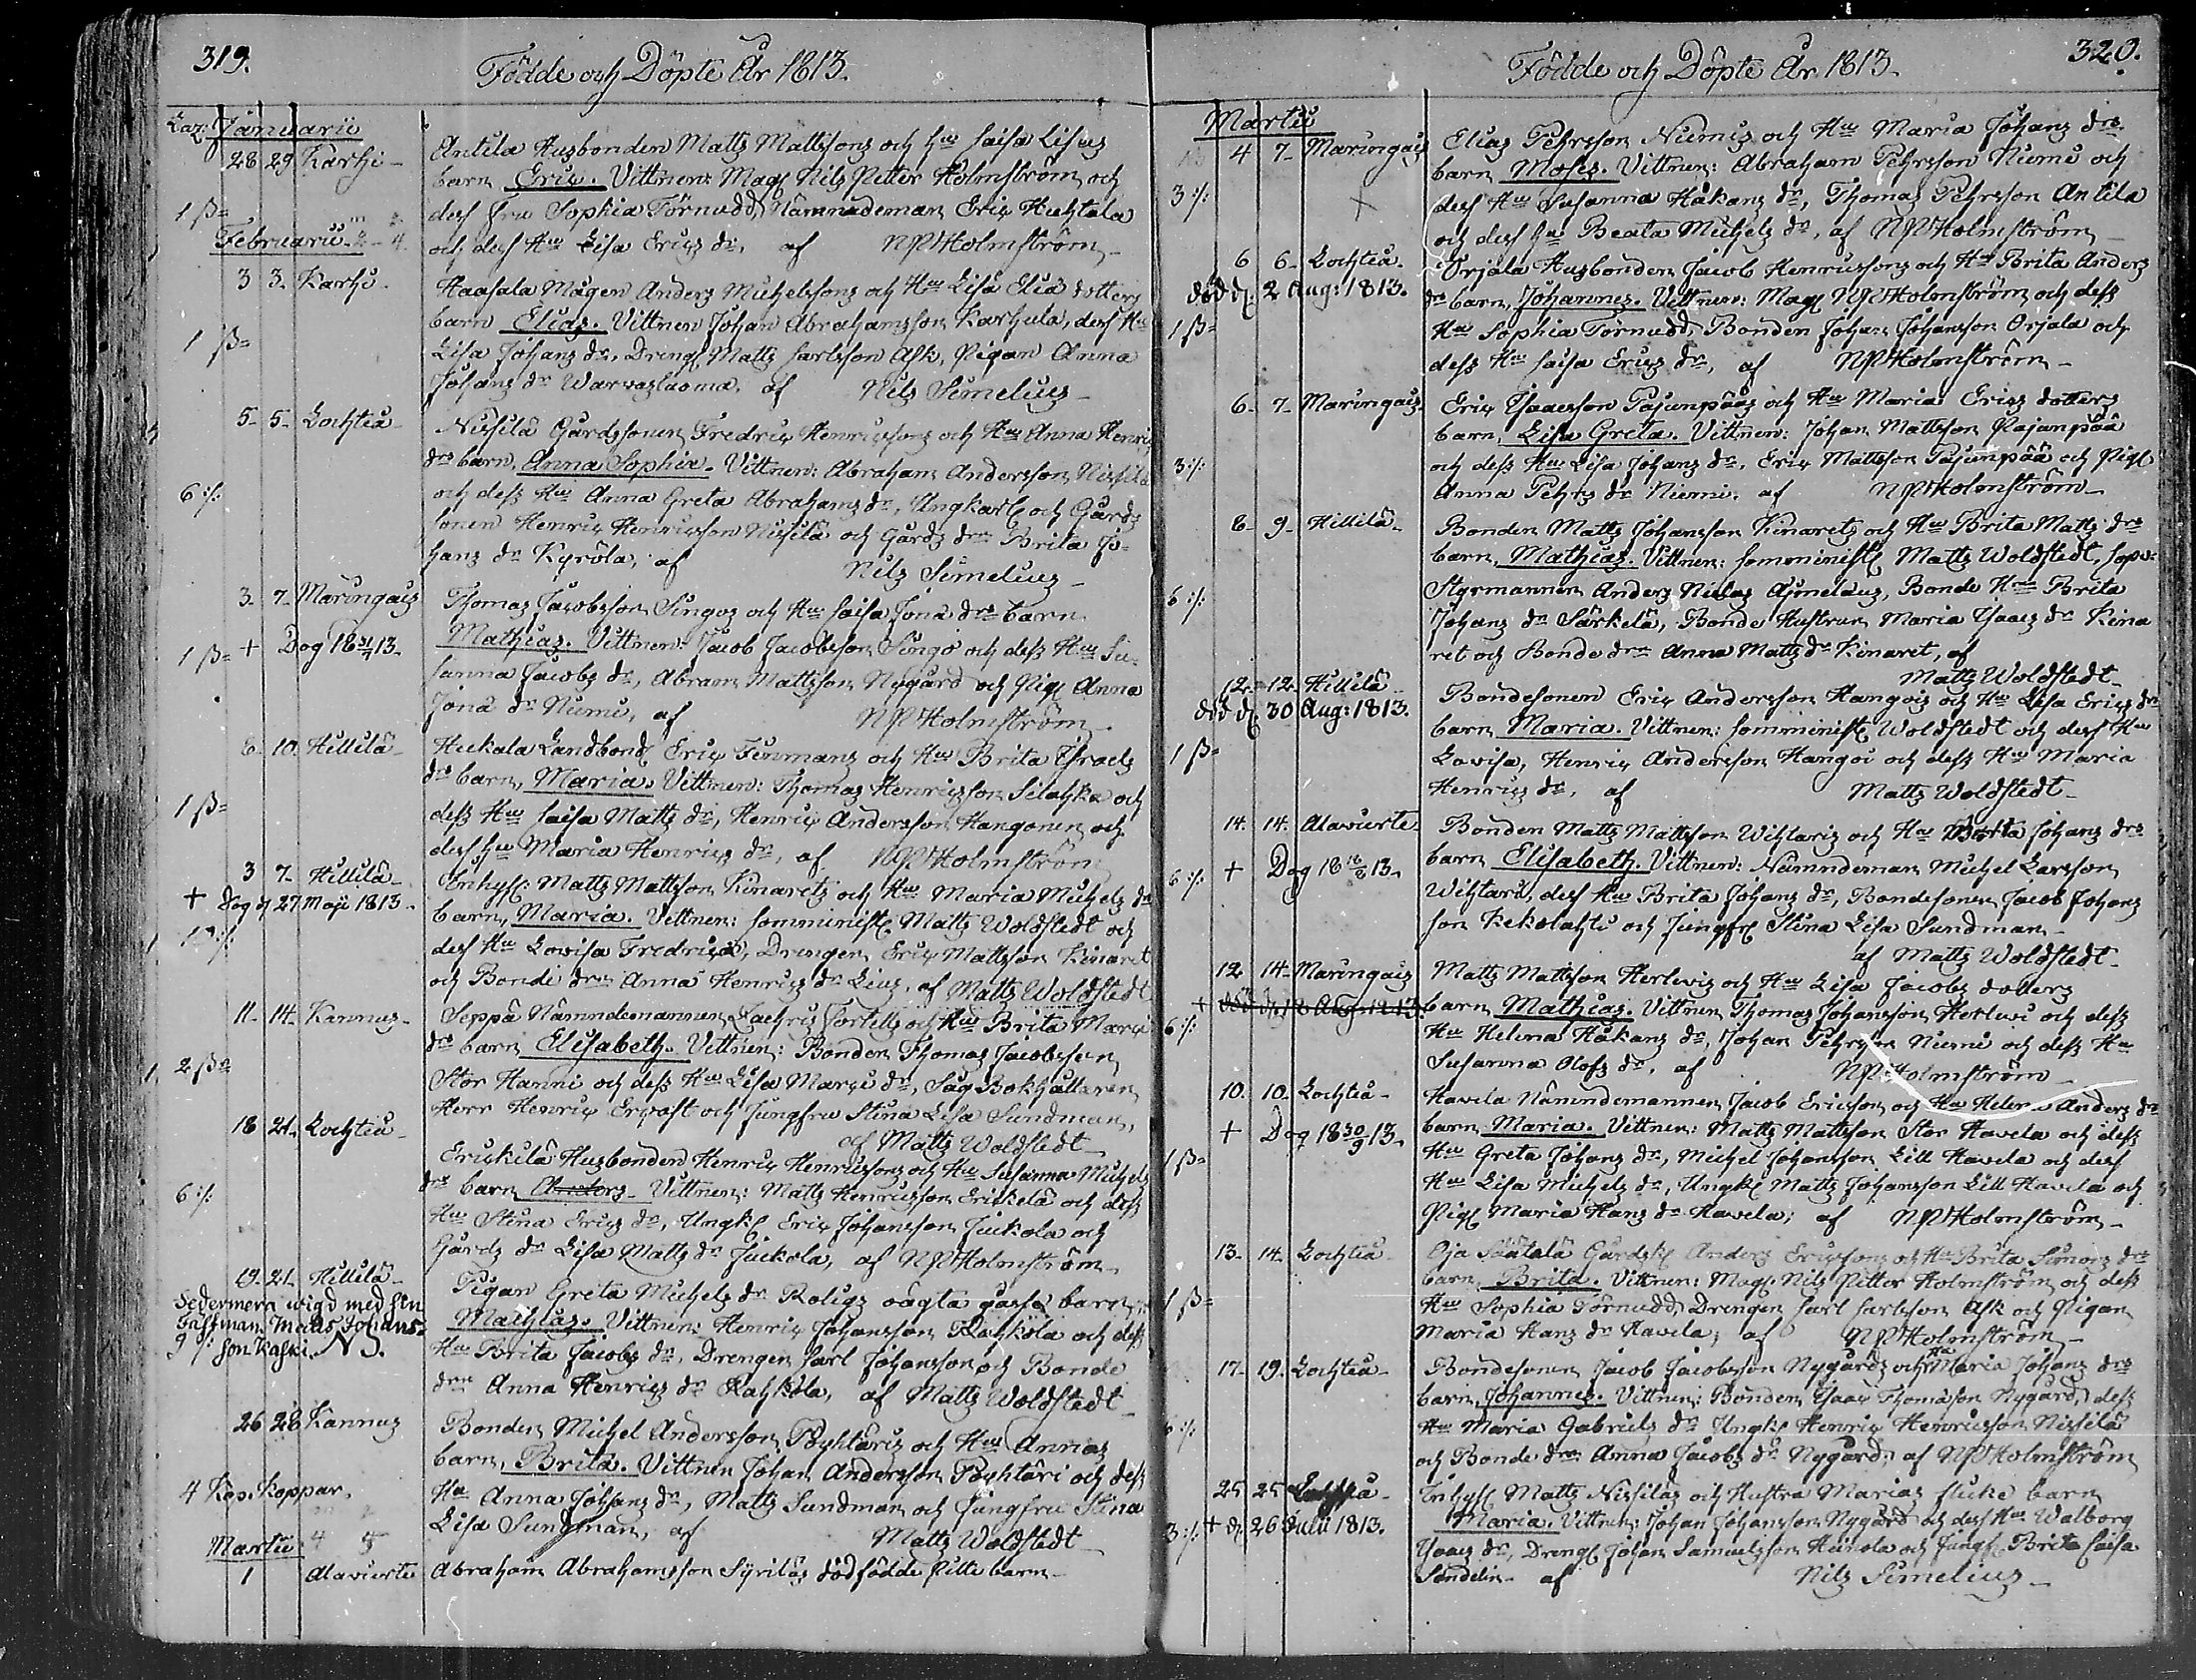 319.
Födde och Döpte År 1813.
Januarii
28 29 Karhi - Antila Husbonden Matts Mattsons och Hu Caisa Lisas
barn Eric. Vittnen: Mag Nils Petter Holmström och
1 ß= dess fru Sophia Törnudd, Nämndeman Eric Huhtala
Februarii 2 - 4. och dess Hu Lisa Erics dr, af NPHolmström
3 3. Karhi - Haasala Mågen Anders Michelssons och Hu Lisa Elia dotters
barn Elias. Vittnen Johan Abrahamsson Karhula, dess Hu
1 ß= Lisa Johans dr, Dreng Matts Carlsson Ask, Pigan Anna
Johans dr Warvaslaoma, af Nils Simelius
5 - 5 - Lochteå - Nissilä Gårdssonen Fredric Henricssons och Hu Anna Henrics
drs barn, Anna Sophia. Vittnen: Abraham Andersson Nissilä
6 :/: och dess Hu Anna Greta Abrahams dr, Ungkarl och Gårds
sonen Henric Henricsson Nissilä och Gårds drn Brita Jo-
hans dr Kyrölä, af Nils Simelius
3. 7 - Maringais Thomas Jacobsson Singos och Hu Caisa Jona drs barn
1 ß= + Dog 18 13. Mathias. Vittnen: Jacob Jacobsson Singo och dess Hu Su-
sanna Jacobs dr, Abram Mattsson Nygård och Pig Anna
Jona dr Niemi, af NPHolmström
8. 10. Hillilä - Hukala Landbond Eric Finmans och Hu Brita Israels
drs barn, Maria. Vittnen: Thomas Henricsson Silahka och
1 ß= dess Hu Caisa Matts dr, Henric Andersson Hangonen och
dess Hu Maria Henrics dr, af NPHolmström
3 7 - Hillilä - Inhys: Matts Mattsson Kinarets och Hu Maria Michels drs
+ dog d 27 Maji 1813. barn, Maria. Vittnen: Comminist Matts Woldstedt och
dess Hu Lovisa Fredrica, Drengen Eric Mattsson Kinaret
och Bonde drn Anna Henrics dr Lius, af Matts Woldstedt
11 - 14 - Kannus - Seppä Nämndemannen Zachris Cortells och Hu Brita Marci
drs barn Elisabeth. Vittnen: Bonden Thomas Jacobsson
2 ß= Stor Hanni och dess Hu Lisa Marci dr, Såg Bokhållaren
Herr Henric Ervast och Jungfru Stina Lisa Sundman,
18 21. Lochteå - af Matts Woldstedt
Erickilä Husbonden Henric Henricssons och Hu Susanna Michels
6 :/: drs barn Anders. Vittnen: Matts Henricsson Erickilä och dess
Hu Stina Erics dr, Ungk Eric Johansson Juckola och
Gårds dr Lisa Matts dr Juckola, af NPHolmström
19. 21. Hillilä - Pigan Greta Michels dr Roligs oägta barn
Sedermera wigd med
Mathias. Vittnen: Henric Johansson Rahkola och dess
Hu Brita Jacobs dr, Drengen Carl Johansson och Bonde
drn Anna Henrics dr Rahkola, af Matts Woldstedt
26 28 Kannus Bonden Michel Andersson Pyhtäris och Hu Annas
barn, Brita. Vittnen Johan Andersson Pyhtäri och dess
4 Kop. Koppar. Hu Anna Johans dr, Matts Sundman och Jungfru Stina
Lisa Sundman, af Matts Woldstedt
Martii
1 Alavierte Abraham Abrahamsson Syriläs dödfödde barn
320.
Födde och Döpte År 1813.
Martii
4 7 - Maringais Elias Pehrsson Niemis och Hu Maria Johans drs
barn Moses. Vittnen: Abraham Pehrsson Niemi och
3 :/: dess Hu Susanna Håkans dr, Thomas Pehrsson Antila
och dess Hu Beata Michels dr, af NPHolmström
6 6 - Lochteå. Orjala Husbonden Jacob Henricssons och Hu Brita Anders
död d. 2 Aug: 1813. drs barn, Johannes. Vittnen: Mag NPHolmström och dess
1 ß= Hu Sophia Törnudd, Bonden Johan Johansson Orjala och
dess Hu Caisa Erics dr, af NPHolmström
6. 7 - Maringais. Eric Isacsson Pajunpääs och Hu Maria Erics dotters
barn, Lisa Greta. Vittnen: Johan Mattsson Pajunpää
3 :/: och dess Hu Lisa Johans dr, Eric Mattsson Pajunpää och Pig
Anna Pehrs dr Niemi, af NPHolmström
8 - 9 - Hillilä - Bonden Matts Johansson Kinarets och Hu Brita Matts drs
barn, Mathias. Vittnen: Comminist Matts Woldstedt,
6 :/: Styrmannen Anders Niclas Ajmelaus, Bonde Hu Brita
Johans dr Särkelä, Bonde Hustrun Maria Isaacs dr Kina
ret och Bonde drn Anna Matts dr Kinaret, af
Matts Woldstedt
12 - 12. Hillilä - Bondesonen Eric Andersson Hangois och Hu Lisa Erics drs
död d. 30 Aug: 1813. barn Maria. Vittnen: Comminist Woldstedt och dess Hu
1 ß= Lovisa, Henric Andersson Hangoi och dess Hu Maria
Henrics dr, af Matts Woldstedt
14. 14. Alavierte Bonden Matts Mattsson Wihtaris och Hu Brita Johans drs
6 :/: + Dog 18 13. barn Elisabeth. Vittnen: Nämndeman Michel Larsson
Wihtari, dess Hu Brita Johans dr, Bondesonen Jacob Johans
son Kekolahti och Jungfr Stina Lisa Sundman
af Matts Woldstedt
12 14 - Maringais Matts Mattsson Herlevis och Hu Lisa Jacobs dotters
6 :/: barn Mathias. Vittnen Thomas Johansson Herlevi och dess
Hu Helena Håkans dr, Johan Pehrsson Niemi och dess Hu
Susanna Olofs dr, af NPHolmström
10. 10. Lochteå - Havela Nämndemannen Jacob Ericsson och Hu Helena Anders drs
+ Dog 18 30/9 13. barn Maria. Vittnen: Matts Mattsson Stor Havela och dess
1 ß= Hu Greta Johans dr, Michel Johansson Lill Havela och dess
Hu Lisa Michels dr, Ungk Matts Johansson Lill Havela och
Pig Maria Hans dr Havela, af NPHolmström
13. 14. Lochteå Oja Säätälä Gårdsk Anders Ericssons och Hu Brita Simons drs
barn, Brita. Vittnen: Mag. Nils Petter Holmström och dess
1 ß= Hu Sophia Törnudd, Drengen Carl Carlsson Ask och Pigan
Maria Hans dr Havela, af NPHolmström
17 - 19. Lochteå - Bondesonen Jacob Jacobsson Nygårds och Hu Maria Johans drs
barn, Johannes. Vittnen: Bonden Isaac Thomasson Nygård, dess
6 :/: Hu Maria Gabriels dr Ungk Henric Henricsson Nissilä
och Bonde drn Anna Jacobs dr Nygård, af NPHolmström
25 25 Lochteå - Inhys Matts Nissiläs och Hustru Marias flicke barn
3 :/: + d. 26 Julii 1813. Maria. Vittnen: Johan Johansson Nygård och dess Hu Walborg
Isaacs dr, Dreng Johan Samuelsson Heinola och Jungf. Brita Caisa
Sandelin af Nils Simelius